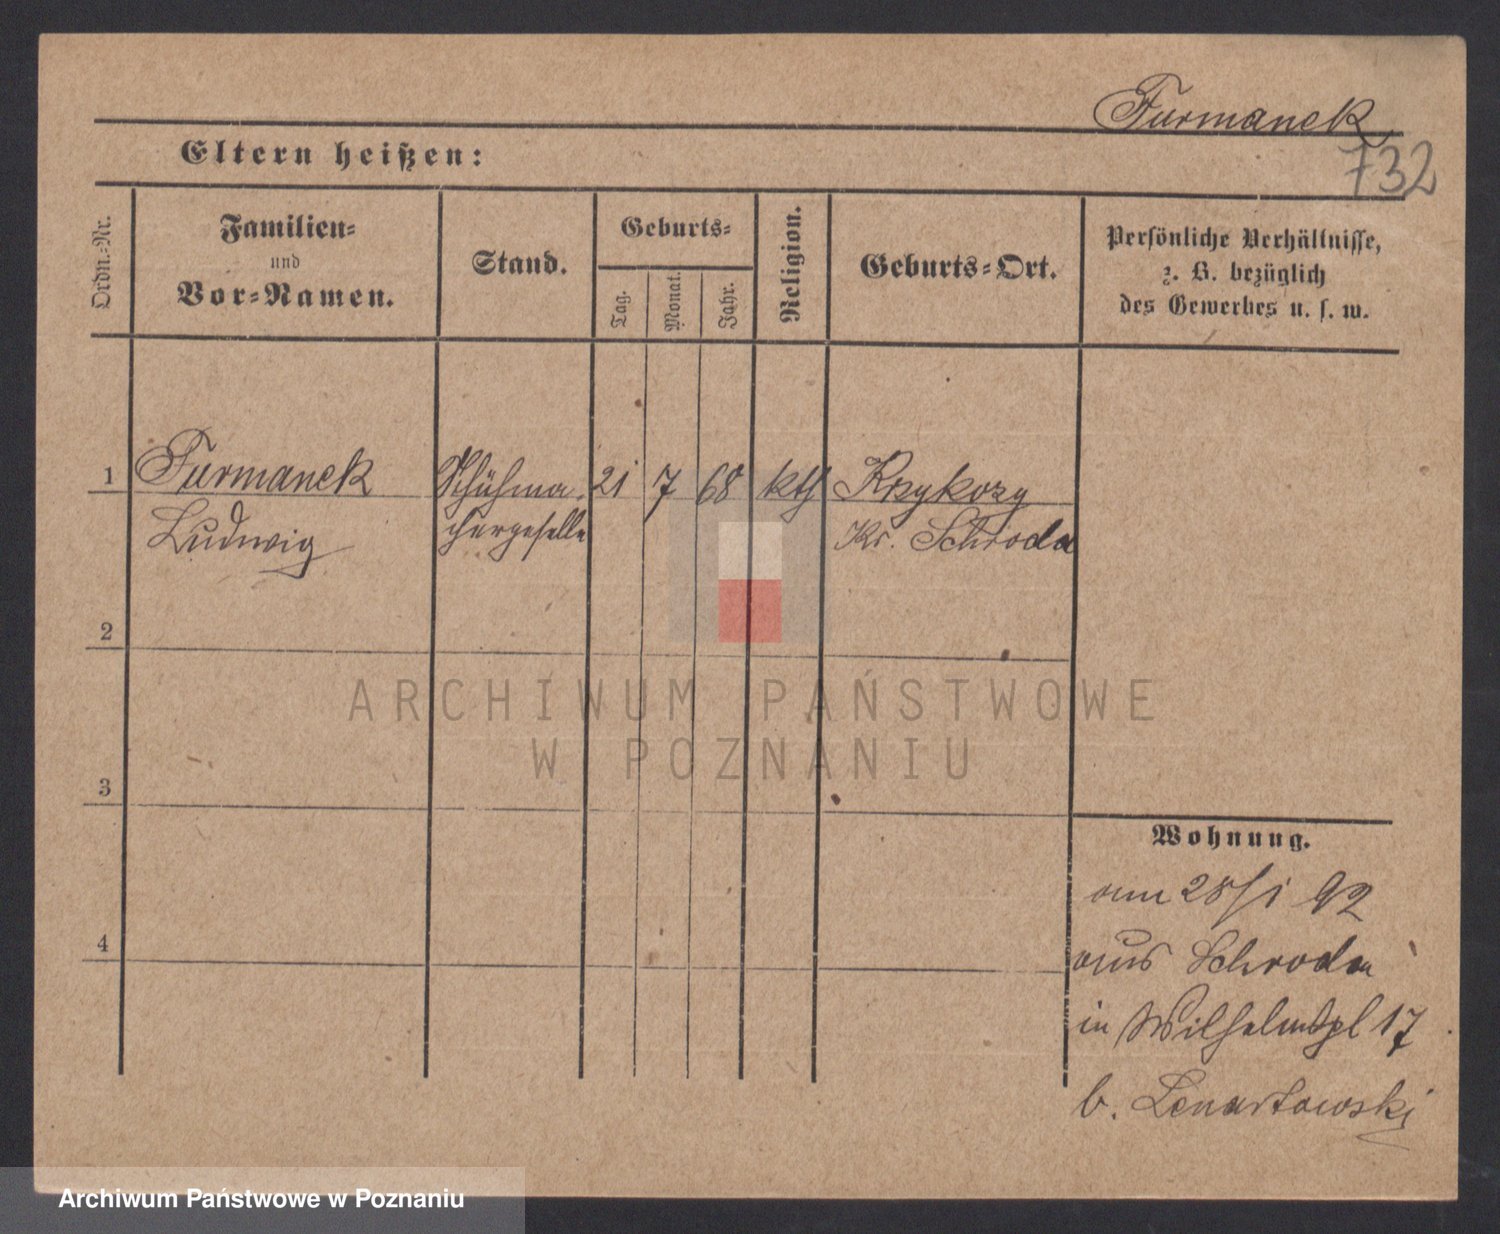 Furmanek
732
Eltern heißen:
Ordn.-Nr.
Familien-
und
Vor-Namen.
Stand.
Geburts-
Tag.
Monat.
Jahr.
Religion.
Geburts-Ort.
Persönliche Verhältnisse,
z. B. bezüglich
des Gewerbes u. s. w.
1
Furmanek
Ludwig
Schuhma-
chergeselle
21
7
68
kth
Krzykozy
Kr. Schroda
2
3
4
Wohnung.
am 28/1 92
aus Schroda
in Wilhelmspl 17
b. Lenartowski
ARCHIWUM PAŃSTWOWE
W POZNANIU
Archiwum Państwowe w Poznaniu